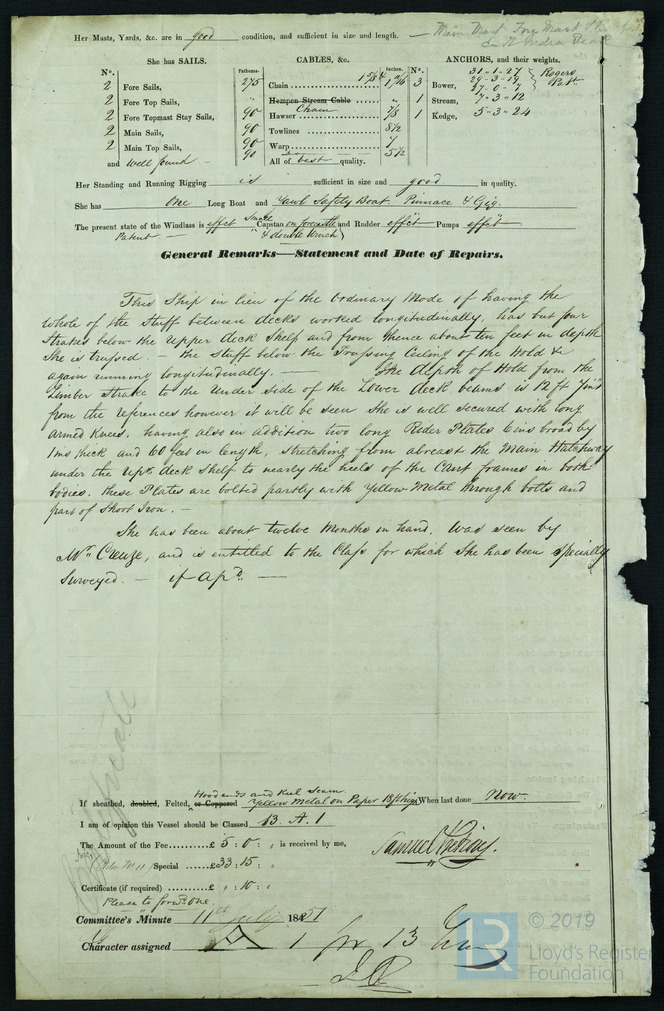 Her Masts, Yards, &c. are in good condition, and sufficient in size and length. — Main Mast Fore Mast
She has SAILS. CABLES, &c. ANCHORS, and their weights.
N°. Fathoms. Inches. N°.
2 Fore Sails, 275 Chain 1 9/16 3 Bower, 31..1..27
29..3..14 Rogers
27..0..7 Pat.
2 Fore Top Sails, " Hempen Stream Cable " 1 Stream, 7..3..12
2 Fore Topmast Stay Sails, 90 Chain Hawser 7/8 1 Kedge, 5..3..24
2 Main Sails, 90 Towlines 8 1/2
2 Main Top Sails, 90 Warp 7
and well found — 90 5 1/2
All of best quality.
Her Standing and Running Rigging is sufficient in size and good in quality.
She has One Long Boat and Lamb Safety Boat Pinnace & Gig.
The present state of the Windlass is effct Capstan on forecastle and Rudder effct Pumps effct
Patent — & double Winch
General Remarks—Statement and Date of Repairs.
This Ship in lieu of the Ordinary Mode of having the
whole of the Stuff between decks worked longitudinally, has but four
Strakes below the Upper deck Shelf and from thence about ten feet in depth
She is trussed. — the Stuff below the Trussing Ceiling of the Hold &c
again running longitudinally. — The depth of Hold from the
Limber Strake to the Under side of the Lower deck beams is 12 ft 7ins
from the references however it will be seen She is well secured with long
armed Knees, having also in addition two long Rider Plates 6ins broad by
1ins thick and 60 feet in length, stretching from abreast the Main Hatchway
under the Upr deck Shelf to nearly the heels of the Cant frames in both
bodies. these Plates are bolted partly with Yellow Metal through bolts and
part of Short Iron. —
She has been about twelve Months in hand, Was seen by
Mr Creuze, and is entitled to the Class for which She has been specially
Surveyed. — if apd. —
Hood ends and Keel Seam
If sheathed, doubled, Felted, or Coppered Yellow Metal on Paper When last done Now.
I am of opinion this Vessel should be Classed 13. A. 1
The Amount of the Fee £ 5 : 0 : " is received by me,
Special £ 33 : 15 : "
Certificate (if required) £ " : 10 : "
Please to forwd one.
Committee's Minute 11th July 1851
Character assigned A 1 for 13 Yrs
© 2019
LR
Lloyd's Register
Foundation